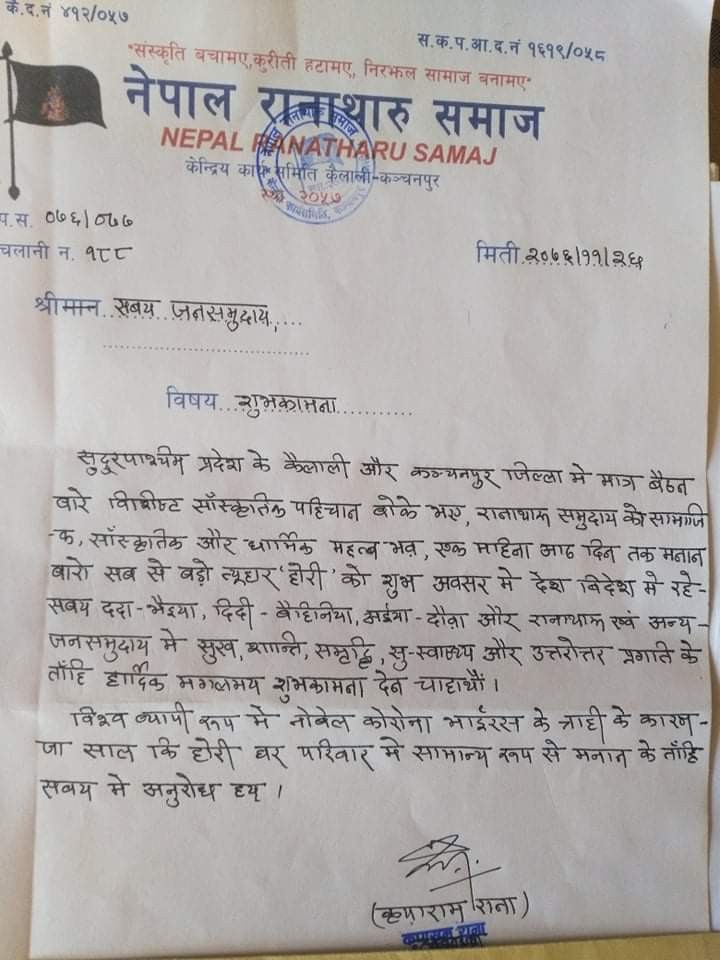 के.द.नं ४१२/०५७
स.क.प.आ.द.नं १६१९/०५८
"संस्कृति बचामए,कुरीती हटामए, निरझल सामाज बनामए"
नेपाल रानाथारु समाज
NEPAL RANATHARU SAMAJ
केन्द्रिय कार्य समिति कैलाली-कञ्चनपुर
२०५७
प.स. ०७६/०७७
चलानी न. १८८
मिती २०७६/११/२६
श्रीमान सबय जनसमुदाय,
विषय शुभकामना
सुदुरपाश्चिम प्रदेश के कैलाली और कञ्चनपुर जिल्ला मे मात्र बैठन
बारे विशिष्ट साँस्कृतिक पहिचान बोके भए, रानाथारू समुदाय को सामाजि
-क, साँस्कृतिक और धार्मिक महत्व भव, एक महिना आठ दिन तक मनान
बारो सब से बडो त्यूहार 'होरी' को शुभ अवसर मे देश बिदेश मे रहे-
सबय ददा-भैइया, दिदी-बैहिनिया, अईया-दौवा और रानाथारू एवं अन्य-
जनसमुदाय मे सुख, शान्ति, समृद्धि, सु-स्वास्थ्य और उत्तरोत्तर प्रगति के
ताँहि हार्दिक मगलमय शुभकामना देन चाहाथौं ।
विश्व ब्यापी रूप मे नोबेल कोरोना भाईरस के त्राही के कारण-
जा साल कि होरी घर परिवार मे सामान्य रूप से मनान के ताँहि
सबय मे अनुरोध हय् ।
(कृपाराम राना)